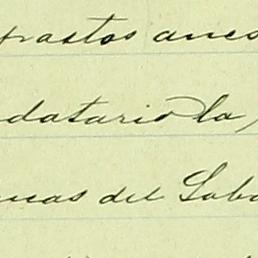 prastos anes
datario la
ucas del Saba